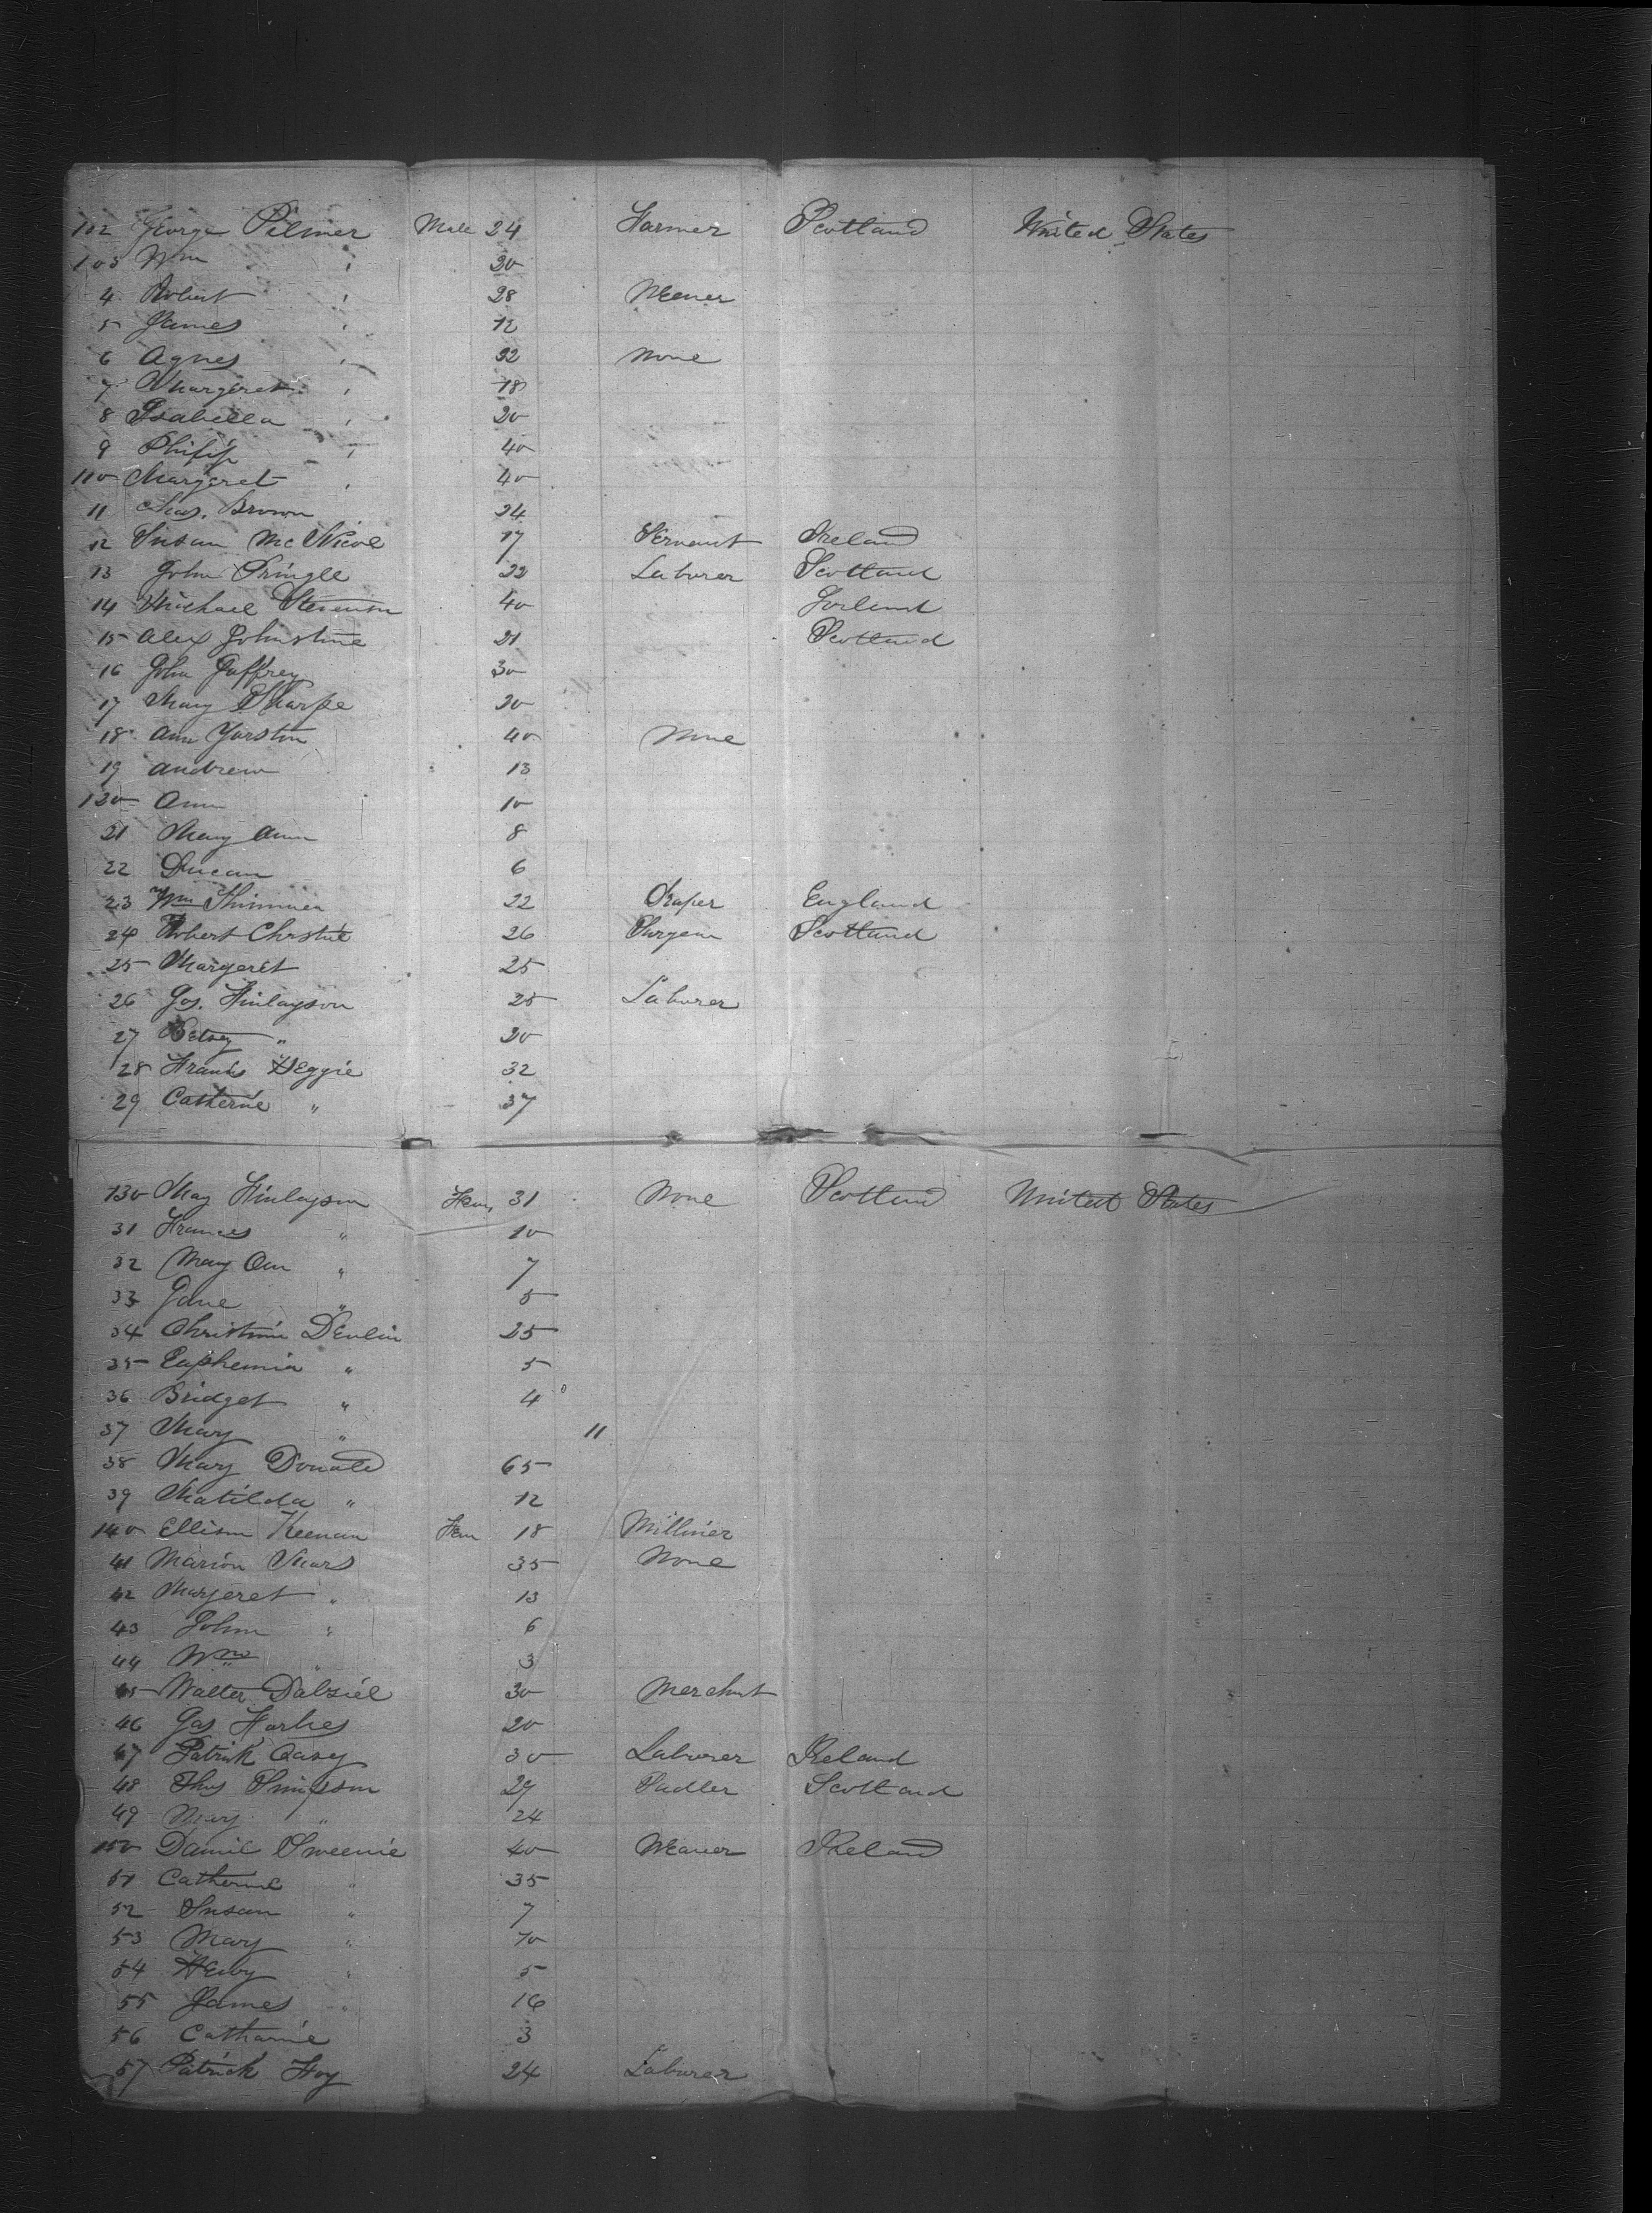 102 George Pilmer Male 24 Farmer Scotland United States
103 Wm " 20
4 Robert " 28 Weaver
5 James " 12
6 Agnes " 22 None
7 Margeret " 18
8 Isabella " 20
9 Philip " 40
110 Margeret " 40
11 Chas. Brown 24
12 Susan McNicol 17 Servant Ireland
13 John Pringle 22 Laborer Scotland
14 Michael Stevenson 40 Irelend
15 Alex Johnstone 21 Scotland
16 John Jaffrey 30
17 Mary Sharpe 20
18 Ann Yorston 40 None
19 Andrew 13
120 Ann 10
21 Mary Ann 8
22 Ducan 6
23 Wm 22 Draper England
24 Robert Christie 26 Surgeon Scotland
25 Margeret 25
26 Jos. Finlayson 25 Laborer
27 Betsey " 20
28 Francis Heggie 32
29 Catherine " 37
130 May Finlayson Fem, 31 None Scotland United States
31 Frances " 10
32 Mary Ann " 7
33 Jane " 5
34 Christina Devlin 25
35 Euphemia " 5
36 Bridget " 4
37 Mary " 11
38 Mary Donald 65
39 Matilda " 12
140 Ellison Keenan Fem 18 Milliner
41 Marion Mars 35 None
42 Margeret " 13
43 John " 6
44 Wm " 3
45 Walter Dalziel 30 Merchant
46 Jas Forbes 20
47 Patrick Casey 30 Laborer Ireland
48 Thos Simpson 29 Sadler Scotland
49 Mary " 24
150 Daniel Sweenie 40 Weaver Ireland
51 Catherine " 35
52 Susan " 7
53 Mary " 70
54 " 5
55 James " 16
56 Catharine 3
57 Patrick Hoy 24 Laborer